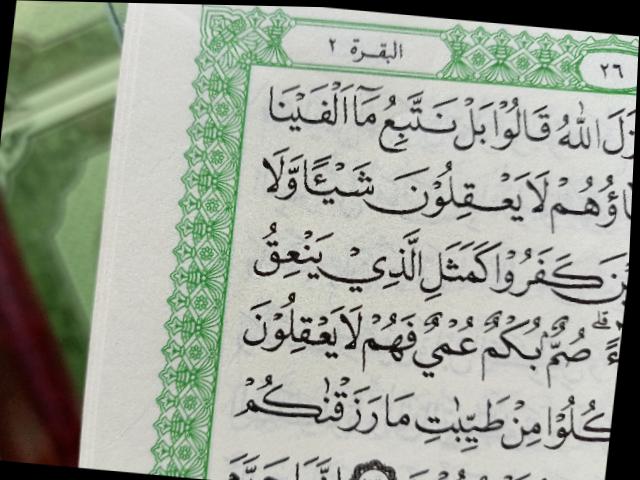 البقرة ٢
٢٦
اللّٰهُ قَالُوْا بَلْ نَتَّبِعُ مَآ اَلْفَيْنَا
لَا يَعْقِلُوْنَ شَيْـًٔا وَّلَا
كَفَرُوْا كَمَثَلِ الَّذِيْ يَنْعِقُ
صُمٌّۢ بُكْمٌ عُمْيٌ فَهُمْ لَا يَعْقِلُوْنَ
كُلُوْا مِنْ طَيِّبٰتِ مَا رَزَقْنٰكُمْ